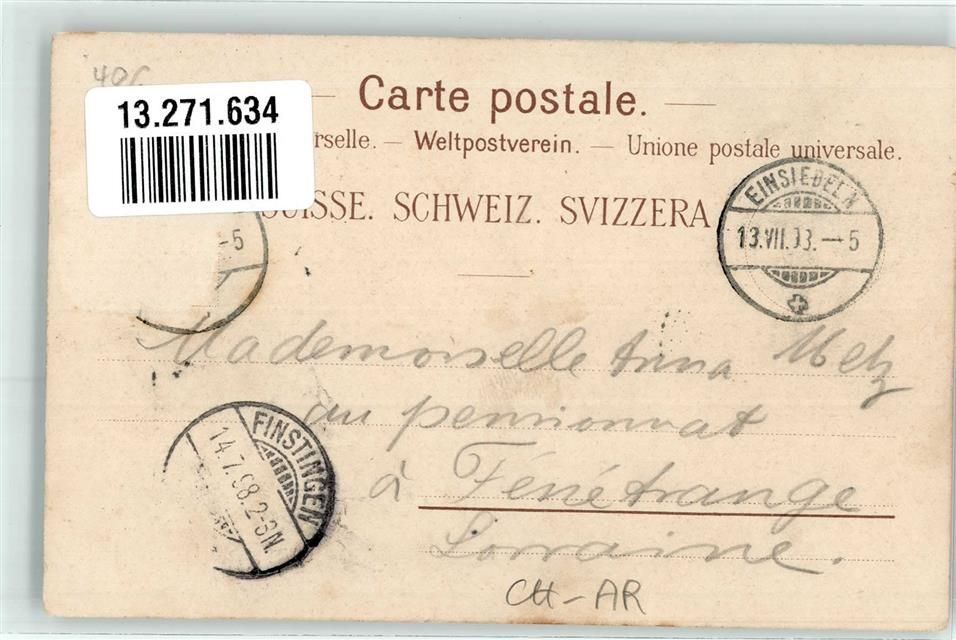 40c
13.271.634
Carte postale.
rselle. — Weltpostverein. — Unione postale universale.
SUISSE. SCHWEIZ. SVIZZERA
–5
EINSIEDELN
13.VII.93.–5
Mademoiselle Anna Metz
au pensionnat
FINSTINGEN
14.7.98.2-3N.
à Fénétrange
Lorraine.
CH-AR